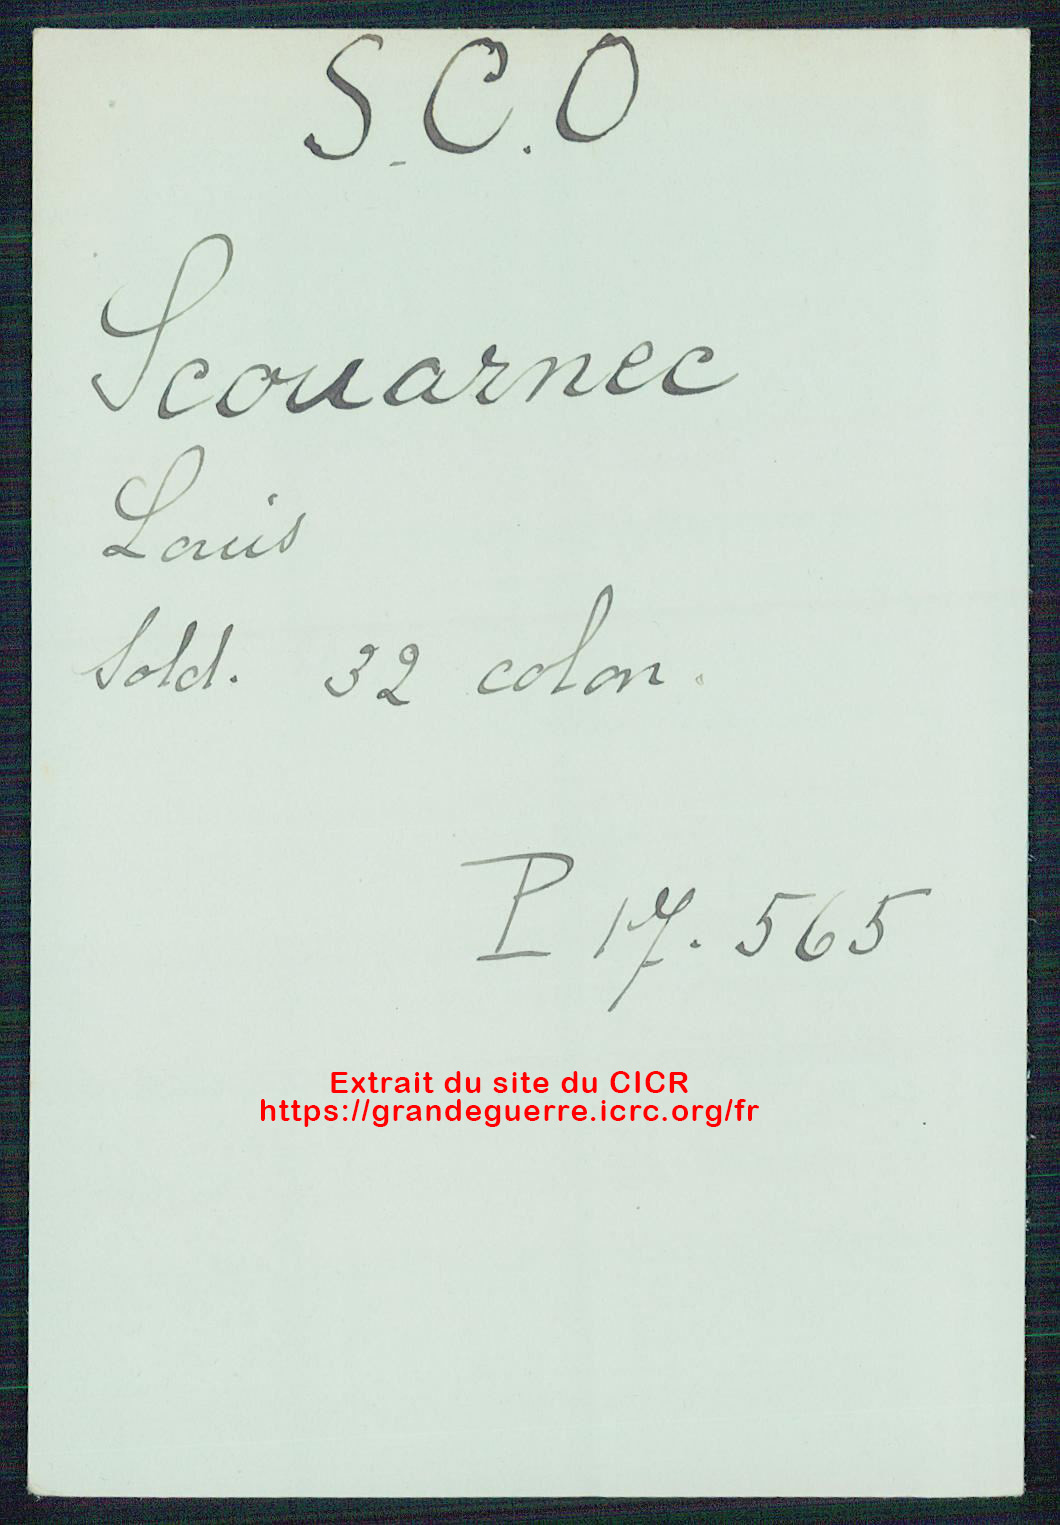 S.C.O
Scouarnec
Louis
Sold. 32 colon.
P 17.565
Extrait du site du CICR
https://grandeguerre.icrc.org/fr